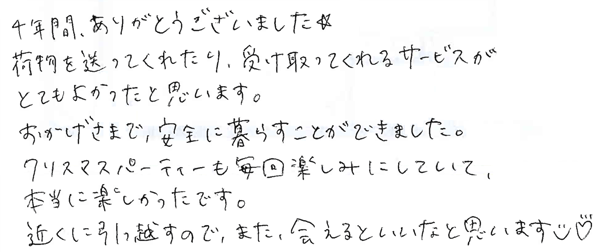 4年間、ありがとうございました☆
荷物を送ってくれたり、受け取ってくれるサービスが
とてもよかったと思います。
おかげさまで、安全に暮らすことができました。
クリスマスパーティーも毎回楽しみにしていて、
本当に楽しかったです。
近くに引っ越すので、また、会えるといいなと思います☺♡